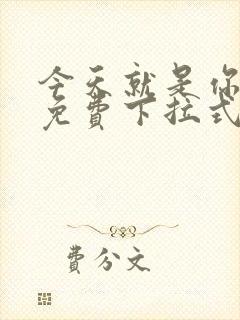 今天就是你
免费下拉式
费分文